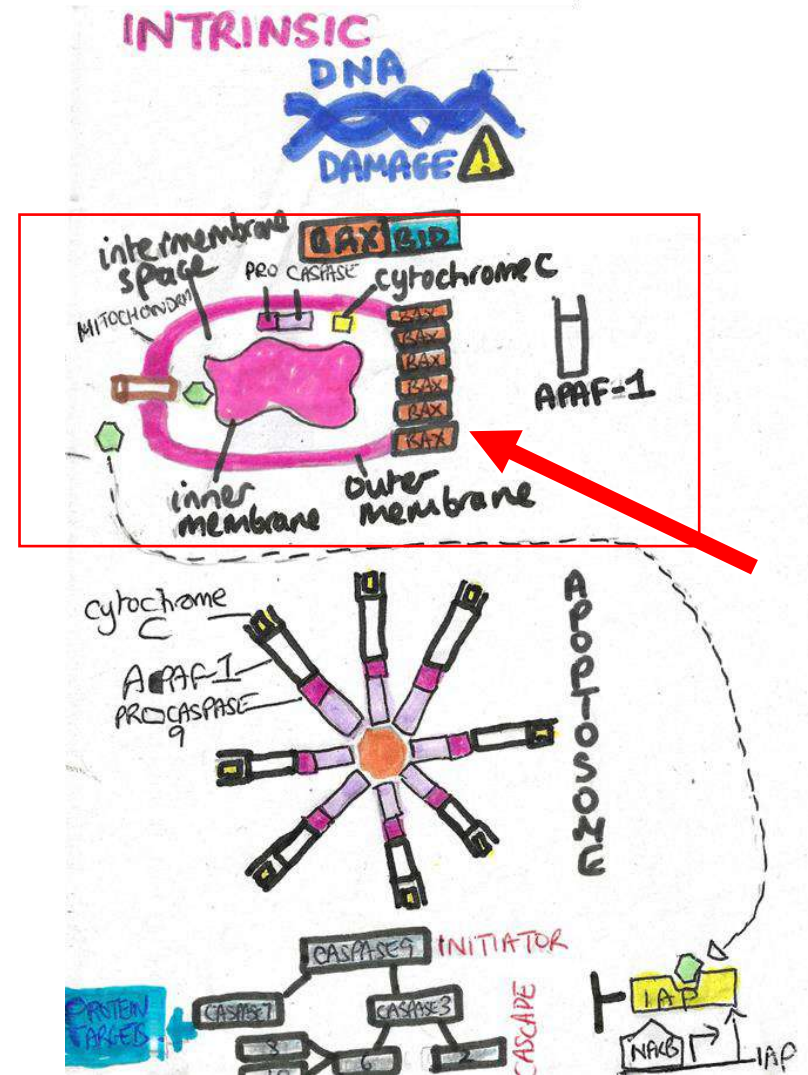 INTRINSIC
DNA
DAMAGE
BAX BID
intermembrane
space
PRO CASPASE
cytochrome C
BAX
BAX
BAX
BAX
BAX
BAX
APAF-1
inner
membrane
outer
membrane
cytochrome
C
APAF-1
PROCASPASE
9
APOPTOSOME
CASPASE9 INITIATOR
CASPASE7
CASPASE3
CASCADE
PROTEIN
TARGETS
8
10
6
2
IAP
NFKB
IAP